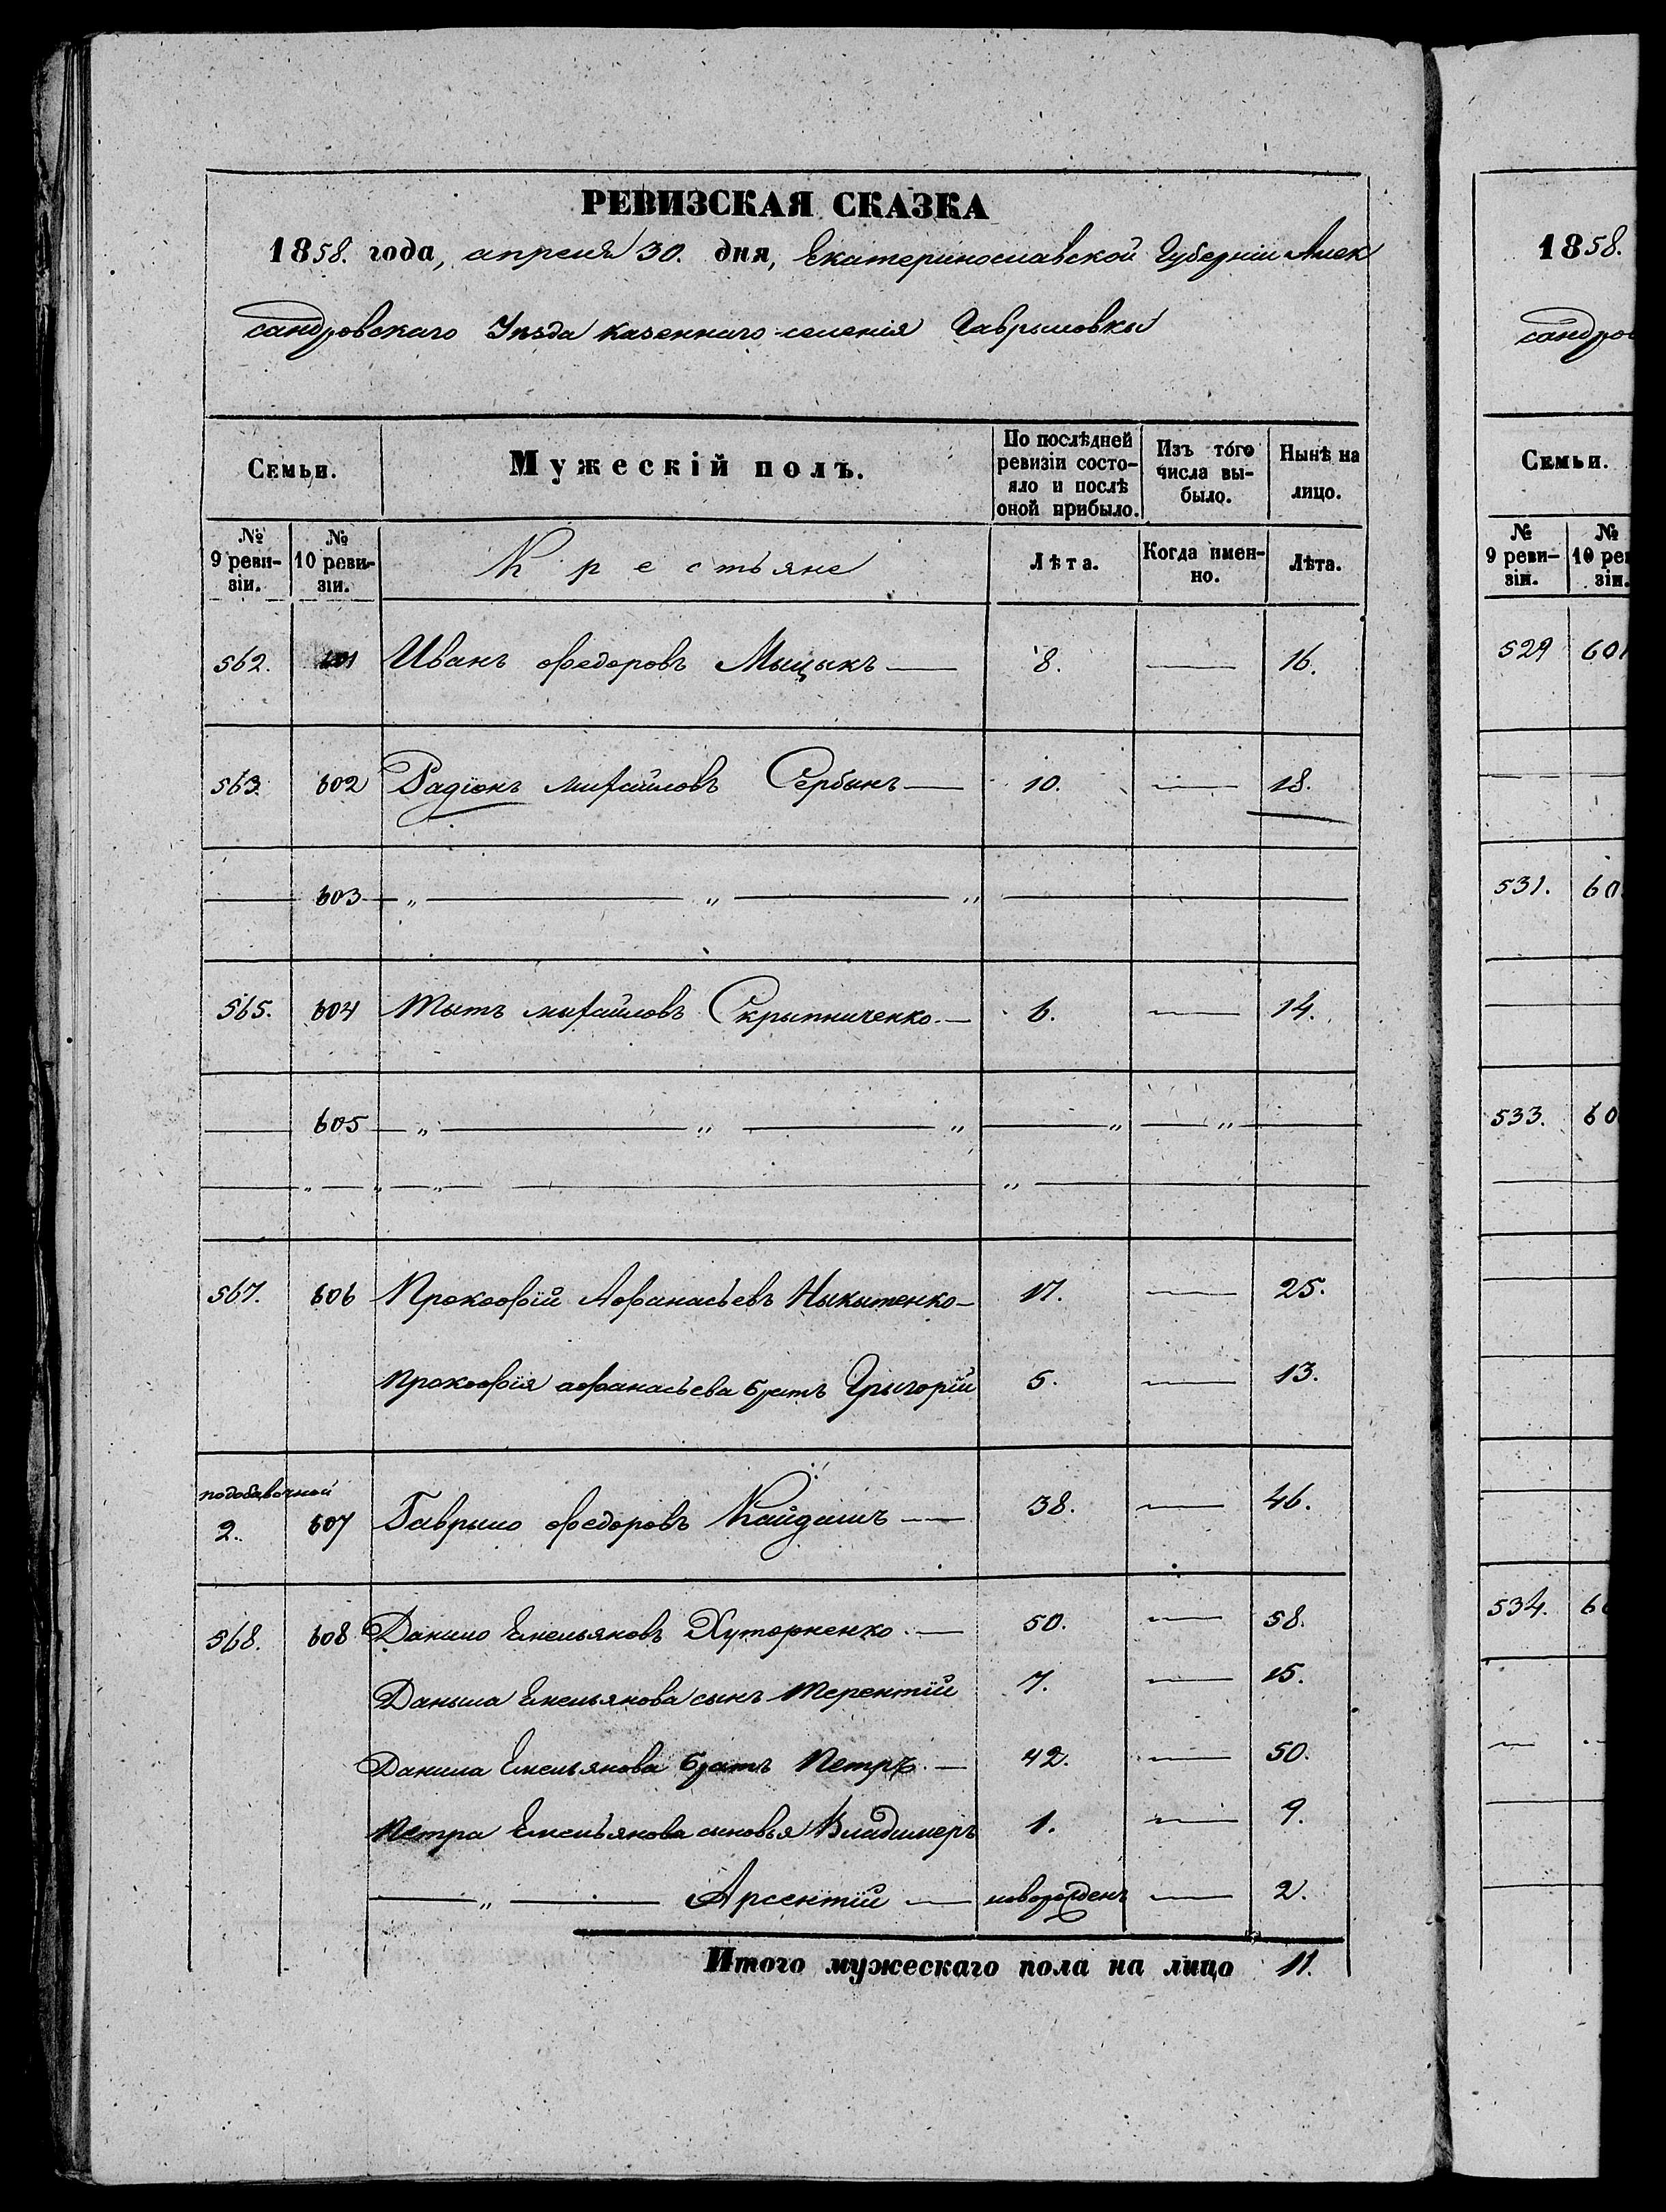 РЕВИЗСКАЯ СКАЗКА
1858. года, апреля 30. дня, Екатеринославской Губерніи Алек
сандровскаго Уѣзда казеннаго селенія Гаврыловкы
Семьи. Мужескій полъ. По послѣдней ревизіи состо- яло и послѣ оной прибыло. Изъ того числа вы- было. Нынѣ на лицо.
№ 9 реви- зіи. № 10 реви- зіи. Крестьяне Лѣта. Когда имен- но. Лѣта.
562. 601 Иванъ Федоровъ Мыцыкъ — 8. — 16.
563. 602 Радіонъ михайловъ Сербынъ — 10. — 18.
— 603 — „ — „ — „ —
565. 604 Тытъ михайловъ Скрыпниченко. — 6. — 14.
— 605 — „ — „ — „ — „ — „ —
— „ — „ — „ — „ —
567. 606 Прокофій Афанасьевъ Ныкытенко — 17. — 25.
Прокофія афанасьева братъ Грыгорій 5. — 13.
подобавочной
2. 607 Гаврыло Федоровъ Кайдашъ — 38. — 46.
568. 608 Данило Емельяновъ Хуторненко. — 50. — 58.
Даныла Емельянова сынъ Терентій 7. — 15.
Данила Емельянова братъ Петръ. — 42. — 50.
Петра Емельянова сыновья Владимеръ 1. — 9.
— „ — Арсентій — новорожденъ — 2.
Итого мужескаго пола на лицо 11.
1858.
сандров
Семьи.
№ 9 реви- зіи. № 10 реви- зіи.
529 60
531. 60
533. 60
534. 60